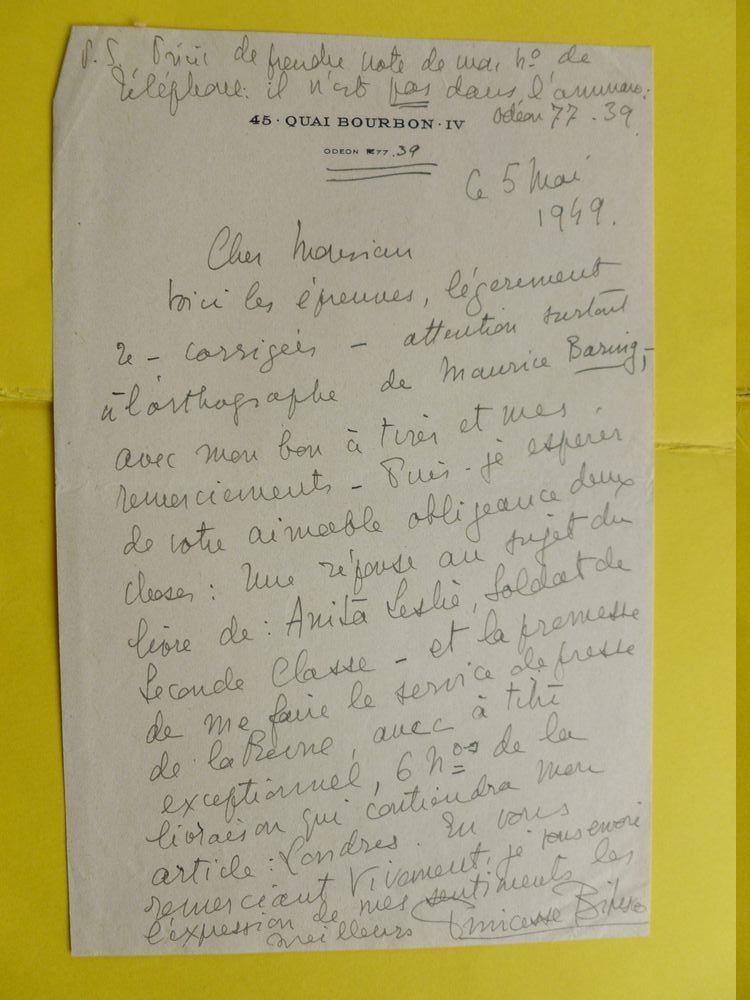 P.S. Prière de prendre note de mon no de
téléphone: il n'est pas dans l'annuaire:
Odéon 77.39
45 · QUAI BOURBON · IV
ODEON 77.39
Ce 5 Mai
1949.
Cher Monsieur
Voici les épreuves, légèrement
re-corrigées - attention surtout
à l'orthographe de Maurice Baring,-
avec mon bon à tirer et mes
remerciements - Puis-je espérer
de votre aimable obligeance deux
choses: Une réponse au sujet du
livre de: Anita Leslie, Soldat de
Seconde Classe - et la promesse
de me faire le service de presse
de la Revue, avec à titre
exceptionnel, 6 Nos de la
livraison qui contiendra mon
article: Londres. En vous
remerciant vivement, je vous envoie
l'expression de mes sentiments les
meilleurs Princesse Bibesco